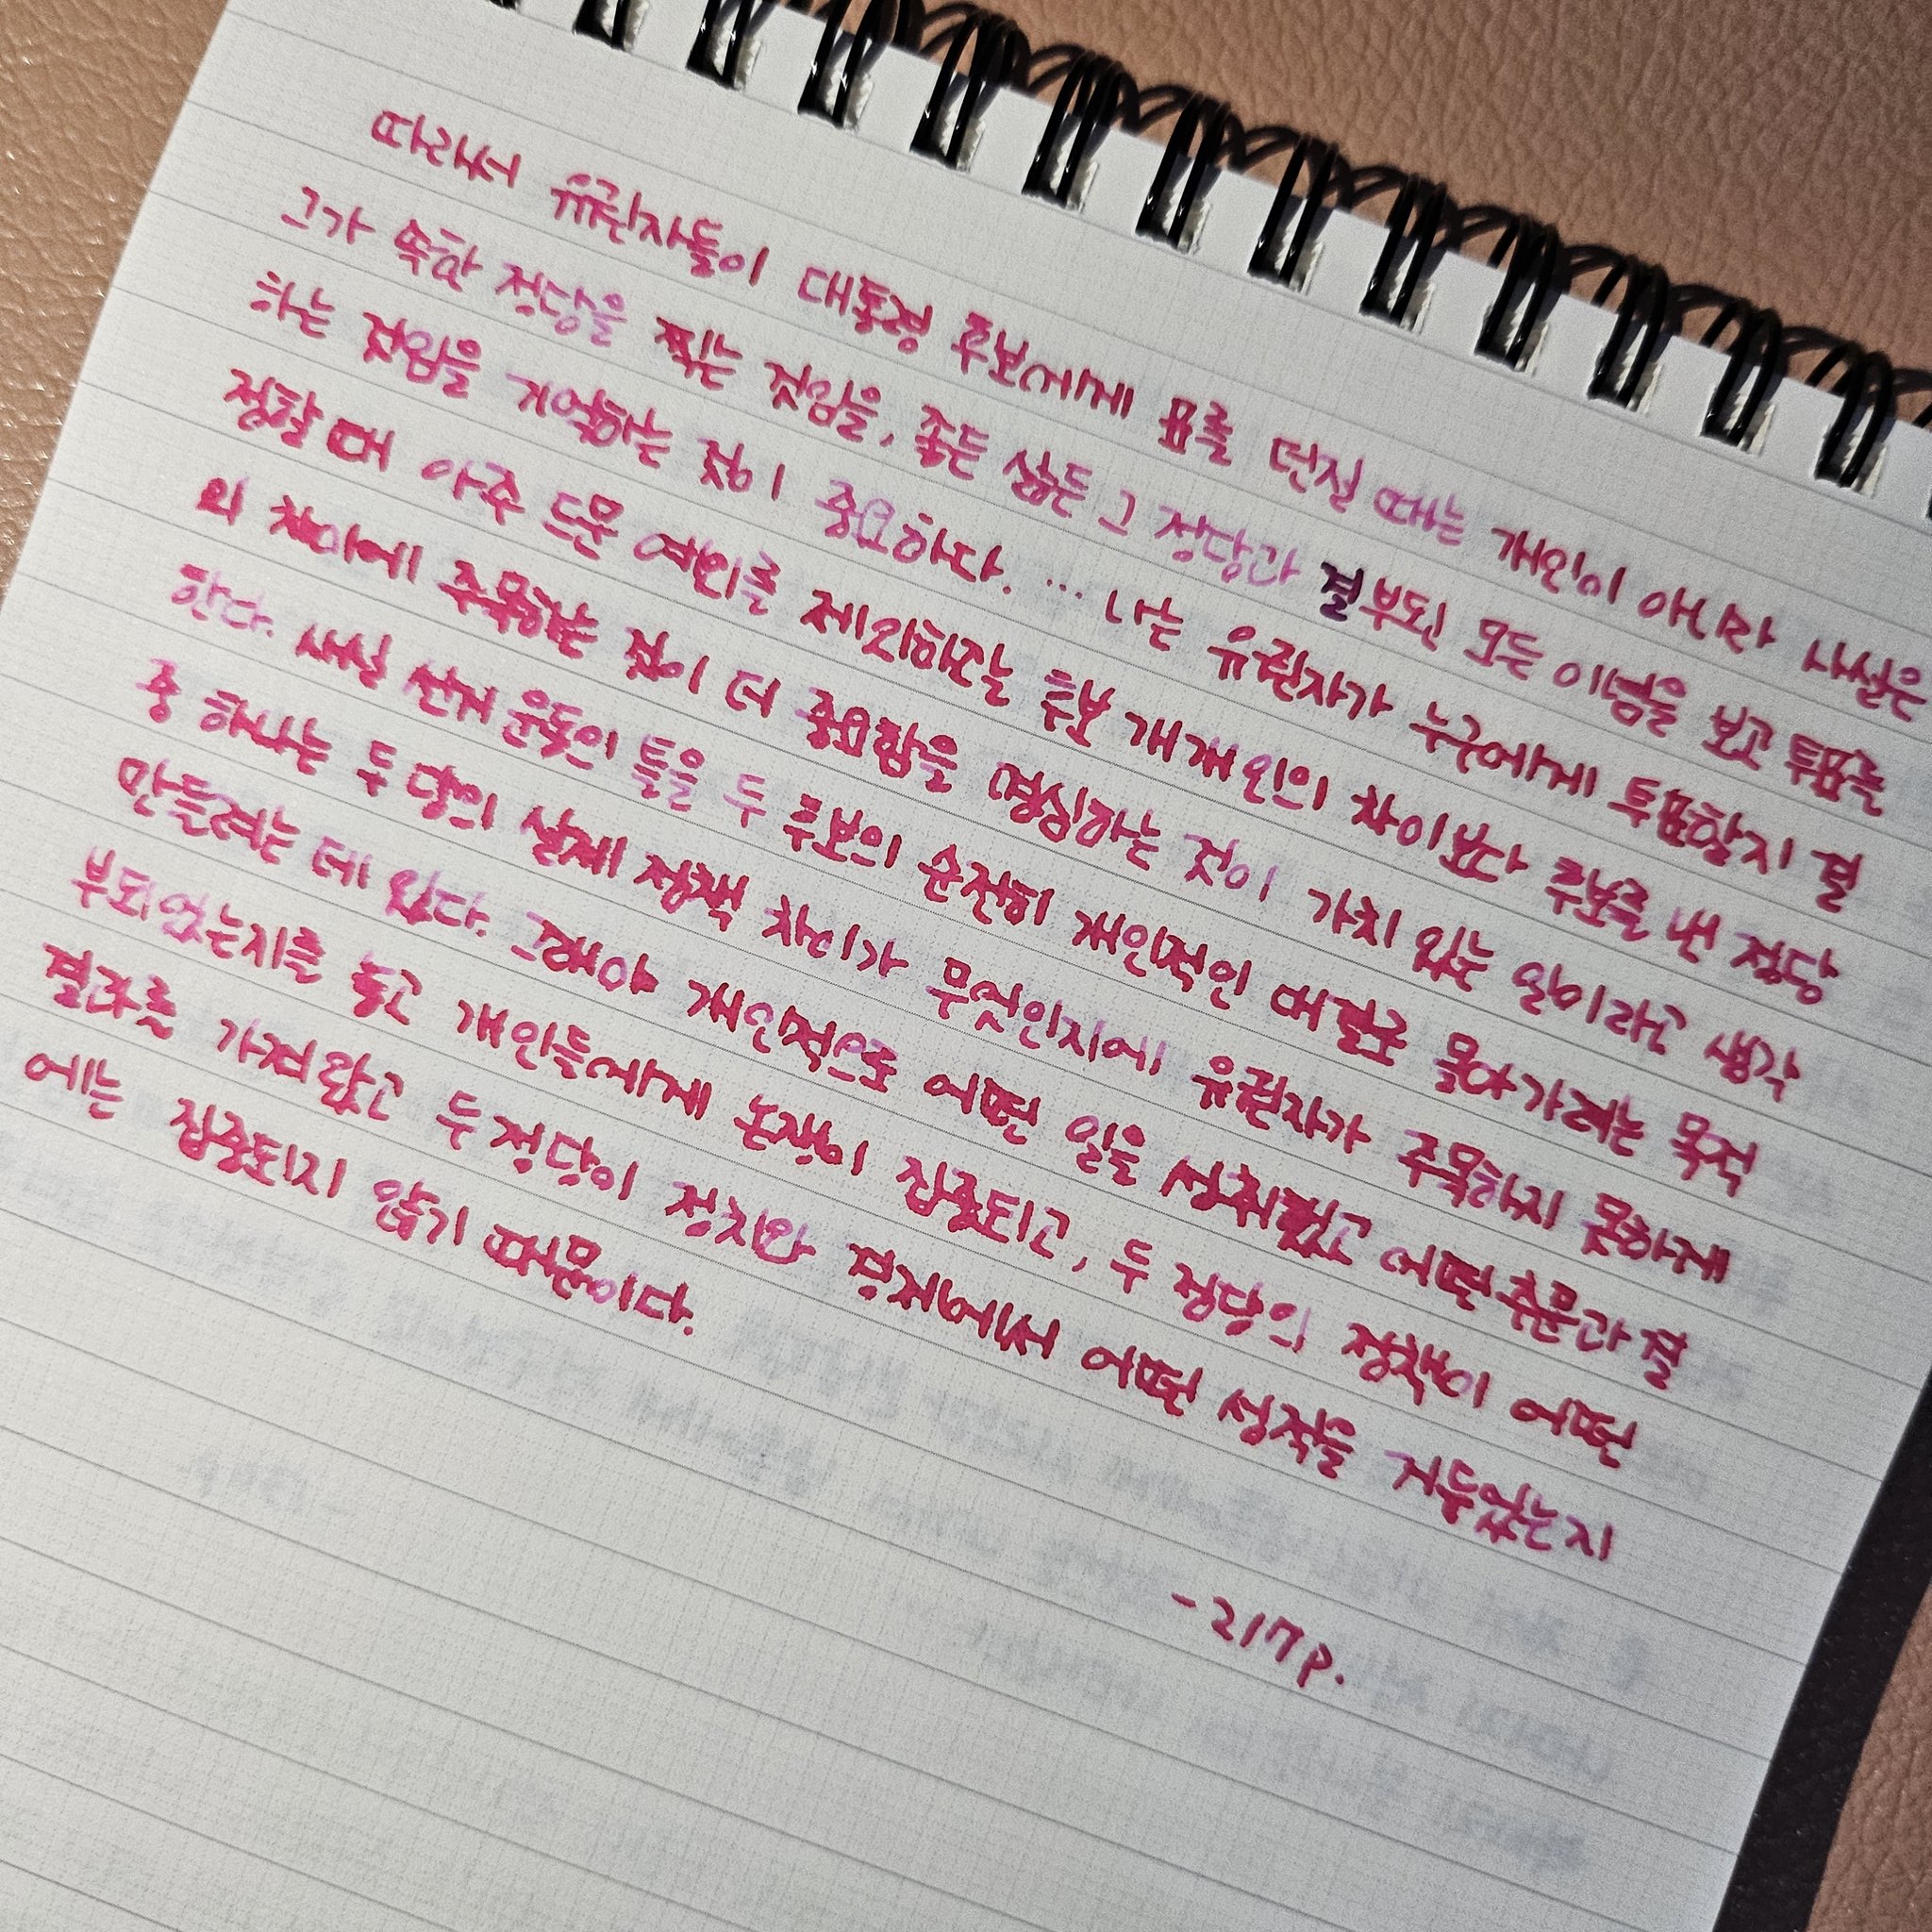 따라서 유권자들이 대통령 후보에게 표를 던질 때는 개인이 아니라 사실은
그가 속한 정당을 찍는 것임을, 좋든 싫든 그 정당과 결부된 모든 이념을 보고 투표를
하는 것임을 기억하는 것이 중요하다. … 나는 유권자가 누구에게 투표할지 결
정할 때 아주 드문 예외를 제외하고는 후보 개개인의 차이보다 후보를 낸 정당
의 차이에 주목하는 것이 더 중요함을 명심하는 것이 가치 있는 일이라고 생각
한다. 사실 선거 운동의 틀을 두 후보의 순전히 개인적인 대결로 몰아가려는 목적
중 하나는 두 당의 실제 정책 차이가 무엇인지에 유권자가 주목하지 못하게
만들려는 데 있다. 그래야 개인적으로 어떤 일을 성취했고 어떤 추문과 결
부되었는지를 놓고 개인들에게 논쟁이 집중되고, 두 정당의 정책이 어떤
결과를 가져왔고 두 정당이 정치와 경제에서 어떤 성적을 거두었는지
에는 집중되지 않기 때문이다.
- 217p.